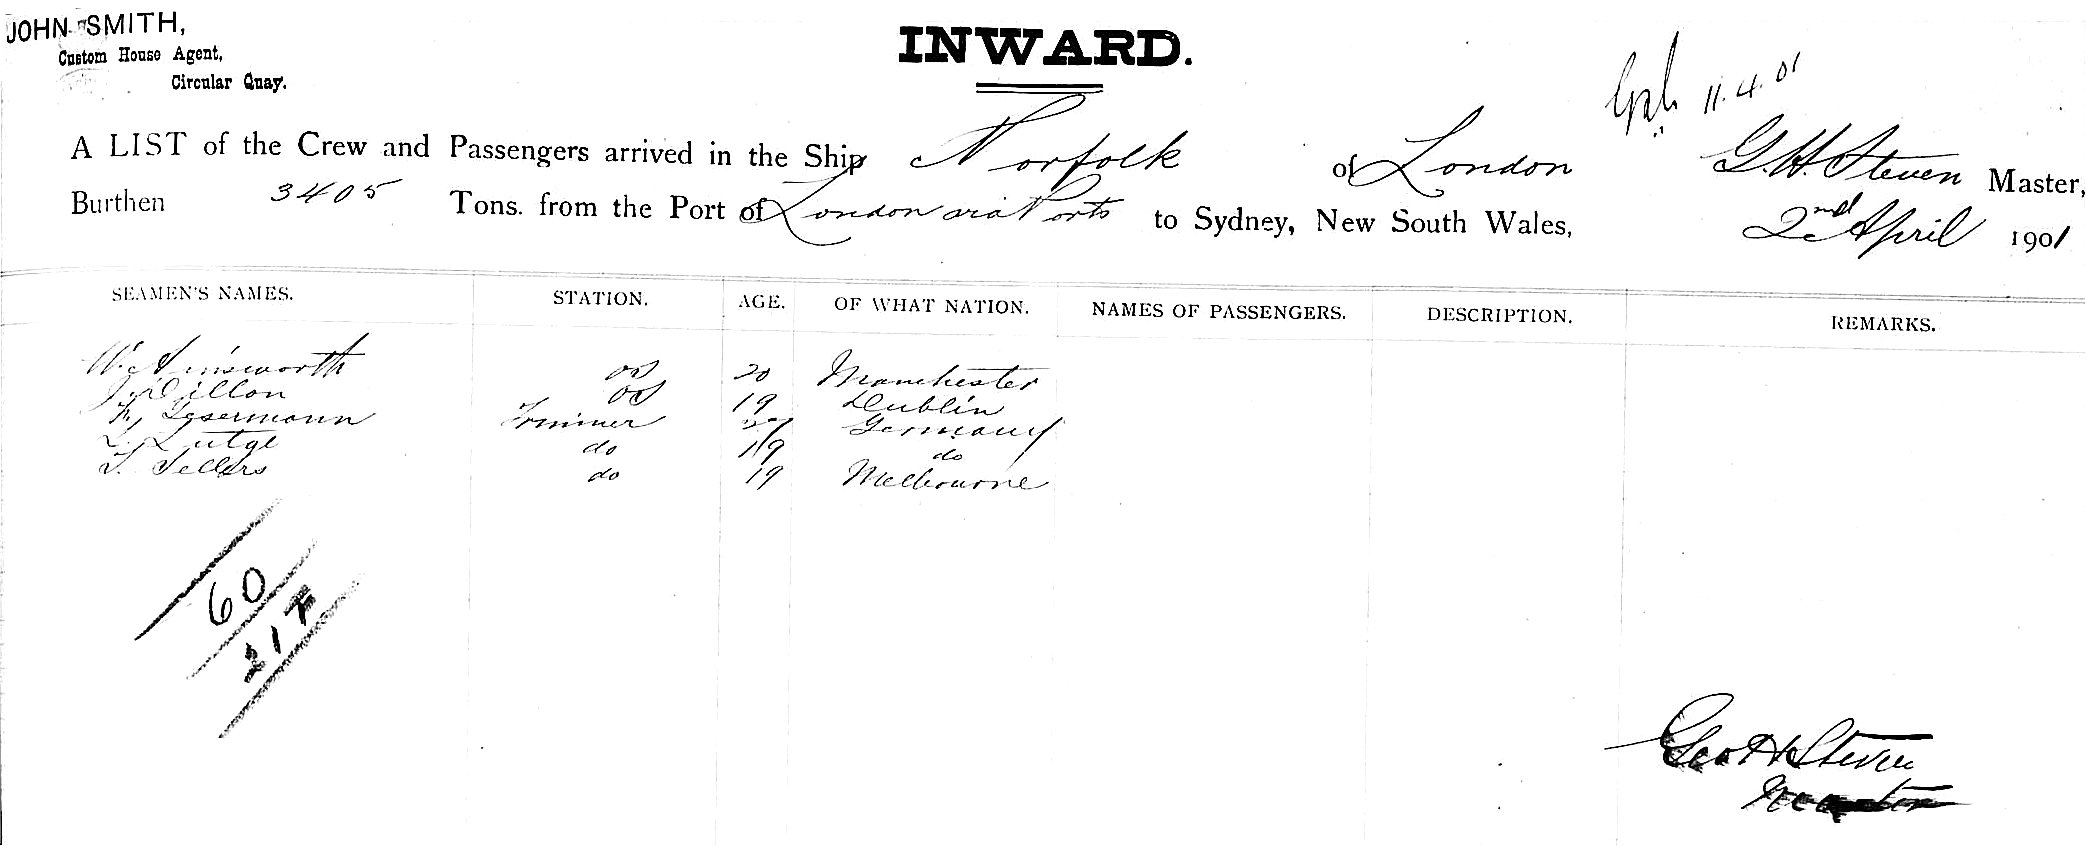 JOHN SMITH,
Custom House Agent,
Circular Quay.
INWARD.
11.4.01
A LIST of the Crew and Passengers arrived in the Ship Norfolk of London G. H. Steven Master,
Burthen 3405 Tons. from the Port of London via Ports to Sydney, New South Wales, 2nd April 1901
SEAMEN'S NAMES. STATION. AGE. OF WHAT NATION. NAMES OF PASSENGERS. DESCRIPTION. REMARKS.
W. Ainsworth OS 20 Manchester
J. Dillon OS 19 Dublin
Trimmer Germany
L. Lutge do 19 do
T. Sellers do 19 Melbourne
60
217
Geo H Steven
Master